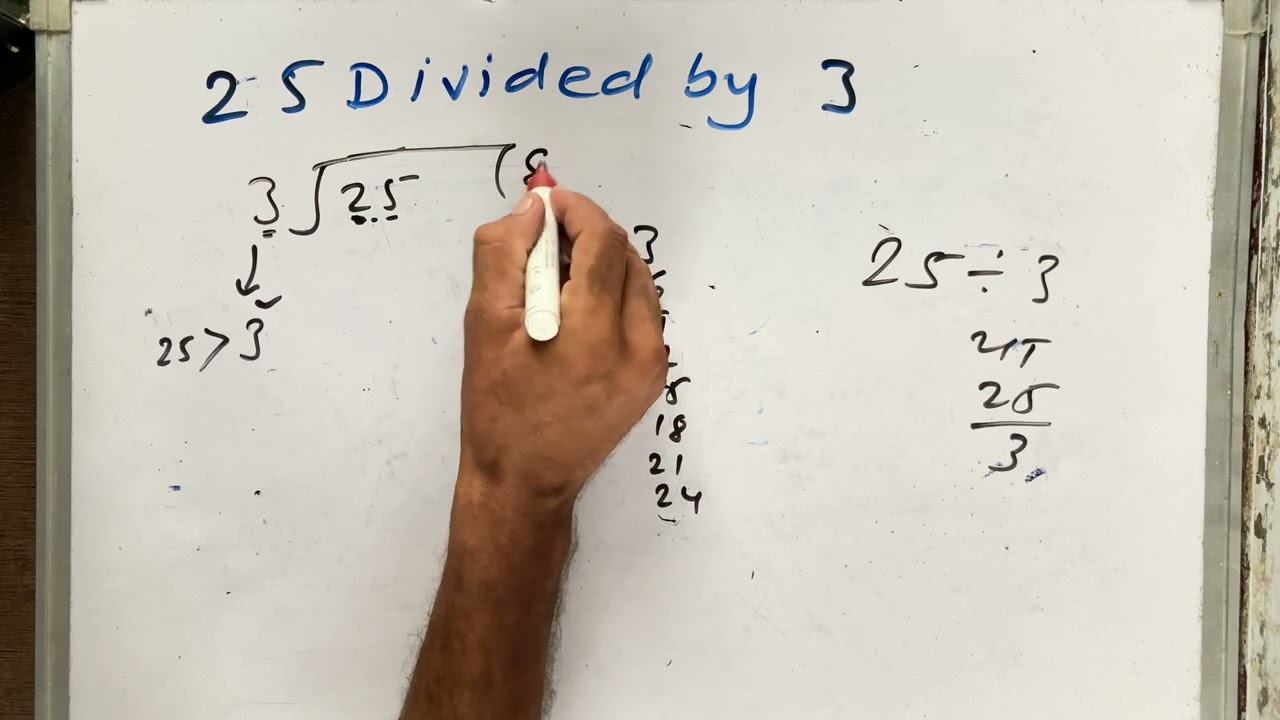 25 Divided by 3
3 25 ( 8
25 > 3
3
18
21
24
25 ÷ 3
25
3